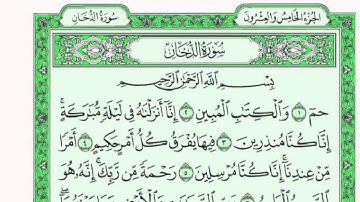 سُورَةُ الدُّخَانِ
الجُزْءُ الخَامِسُ وَالعِشْرُونَ
سُورَةُ الدُّخَانِ
بِسْمِ اللَّهِ الرَّحْمَٰنِ الرَّحِيمِ
حمٓ ١ وَالْكِتَابِ الْمُبِينِ ٢ إِنَّا أَنزَلْنَاهُ فِي لَيْلَةٍ مُّبَارَكَةٍ ۚ
إِنَّا كُنَّا مُنذِرِينَ ٣ فِيهَا يُفْرَقُ كُلُّ أَمْرٍ حَكِيمٍ ٤ أَمْرًا
مِّنْ عِندِنَا ۚ إِنَّا كُنَّا مُرْسِلِينَ ٥ رَحْمَةً مِّن رَّبِّكَ ۚ إِنَّهُ هُوَ